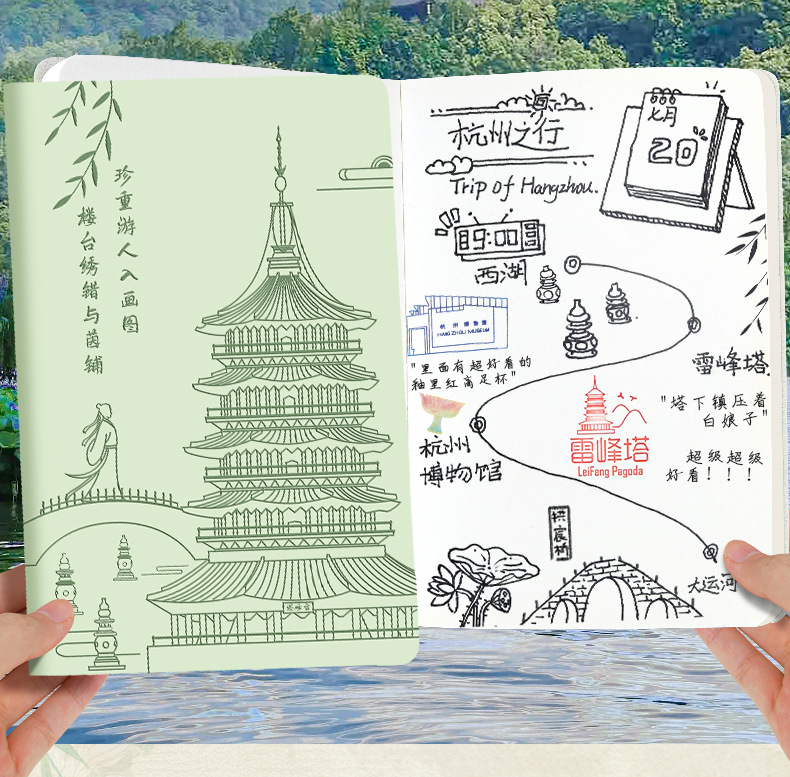 珍重游人入画图
楼台绣错与茵铺
雷峰塔
杭州之行
Trip of Hangzhou.
七月
20
09:00
西湖
杭州博物馆
HANGZHOU MUSEUM
"里面有超好看的
釉里红高足杯"
杭州
博物馆
雷峰塔
"塔下镇压着
白娘子"
超级超级
好看！！！
雷峰塔
LeiFeng Pagoda
拱宸桥
大运河